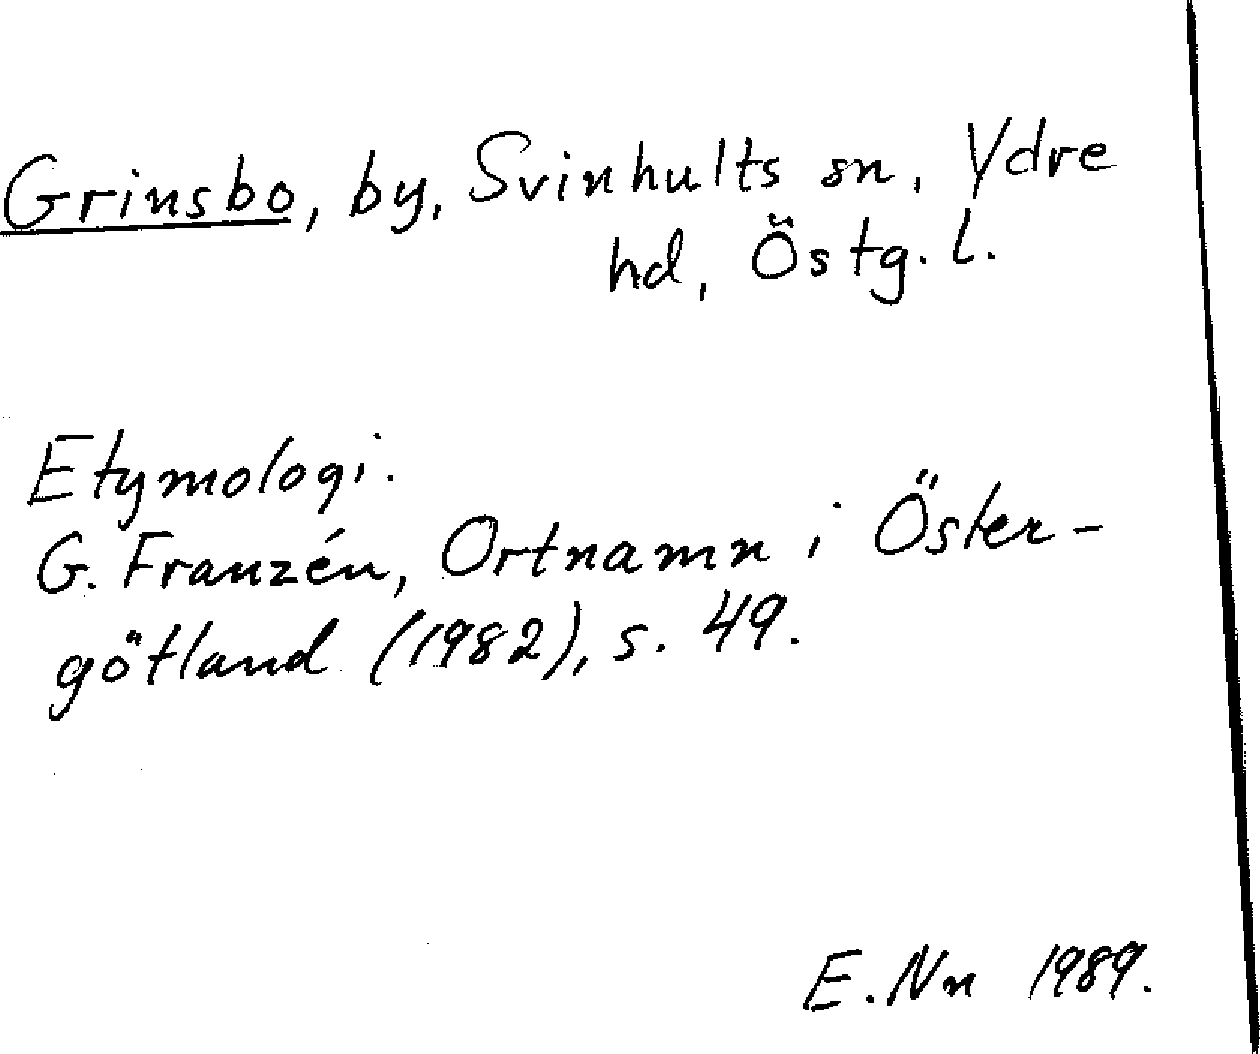 Grinsbo, by, Svinhults sn, Ydre
hd, Östg. l.
Etymologi.
G. Franzén, Ortnamn i Öster-
götland (1982), s. 49.
E. Nn 1989.